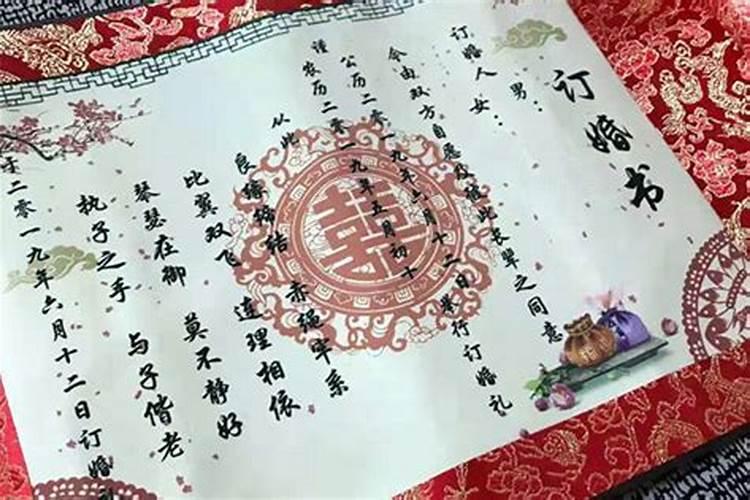 订婚书
订婚人男：
女：
今由双方自愿及彼此长辈之同意
谨
公历二零一九年六月十二日举行订婚礼
农历二零一九年五月初十
从此
良缘缔结 赤绳牢系
连理相依
比翼双飞
琴瑟在御 莫不静好
执子之手 与子偕老
于二零一九年六月十二日订婚